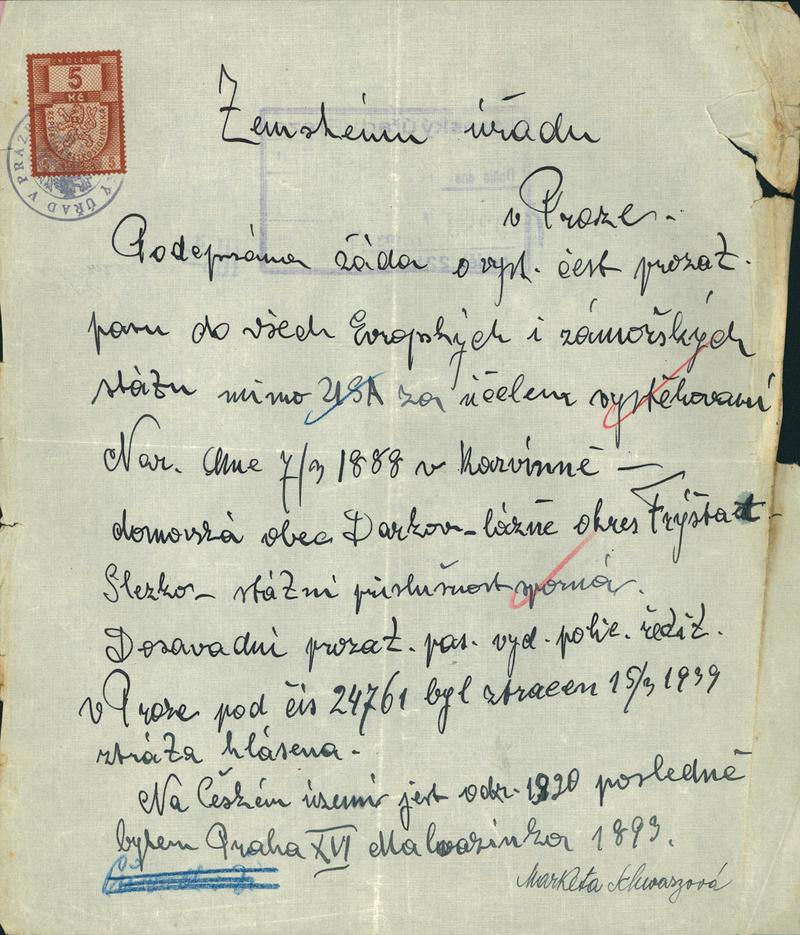 KOLEK
5
Kč
ÚŘAD V PRAZE
Zemskému úřadu
v Praze.
Podepsána žádá o vyst. čest prozat.
pasu do všech Evropských i zámořských
států mimo USA za účelem vystěhování
Nar. dne 7/3 1888 v Karvinné —
domovská obec Darkov - lázně okres Fryštat -
Slezko - státní příslušnost sporná.
Dosavadní prozat. pas. vyd. polic. ředit.
v Praze pod čís 24761 byl ztracen 15/3 1939
ztráta hlášena -
Na Českém území jest odr. 1920 posledně
bytem Praha XVI Malvazinka 1893.
Marketa Schwarzová